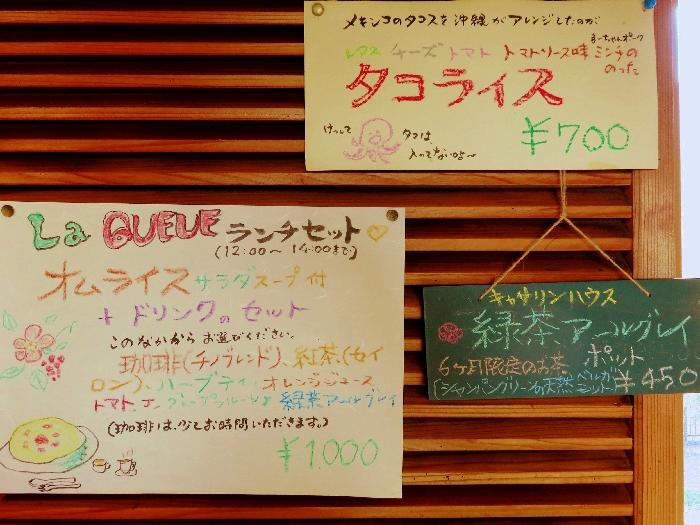 メキシコのタコスを沖縄がアレンジしたのが
まーちゃんポーク
レタス チーズ トマト トマトソース味 ミンチの
のった
タコライス
けっして タコは、
入ってないよ~
¥700
La QUEUE ランチセット
(12:00〜14:00まで)
オムライス サラダスープ付
+ ドリンクのセット
このなかから お選びください。
珈琲(チノブレンド)、紅茶(セイ
ロン)、ハーブティ、オレンジジュース
トマト、 グレープフルーツ 緑茶アールグレイ
(珈琲は、少しお時間いただきます。)
¥1.000
キャサリンハウス
緑茶アールグレイ
6ヶ月限定のお茶 ポット
「シャンパングリーンの天然ベルガ
モット」 ¥450